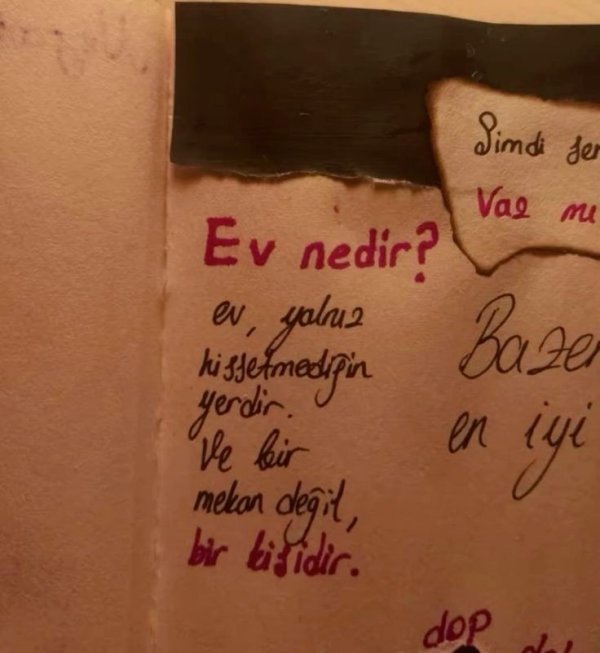 Şimdi
Vaz mı
Ev nedir?
ev, yalnız
hissetmediğin
yerdir.
Ve bir
mekan değil,
bir kişidir.
en iyi
dop